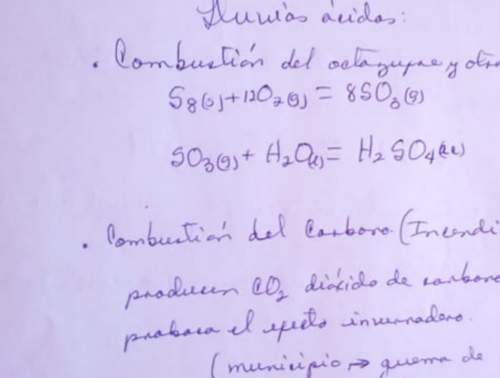 Lluvias ácidas:
• Combustión del octazufre y otro
S8(s) + 12O2(g) = 8SO3(g)
SO3(g) + H2O(l) = H2SO4(ac)
• Combustión del Carbono (Incendi
producen CO2 dióxido de carbono
proboca el efecto invernadero.
(municipio → quema de